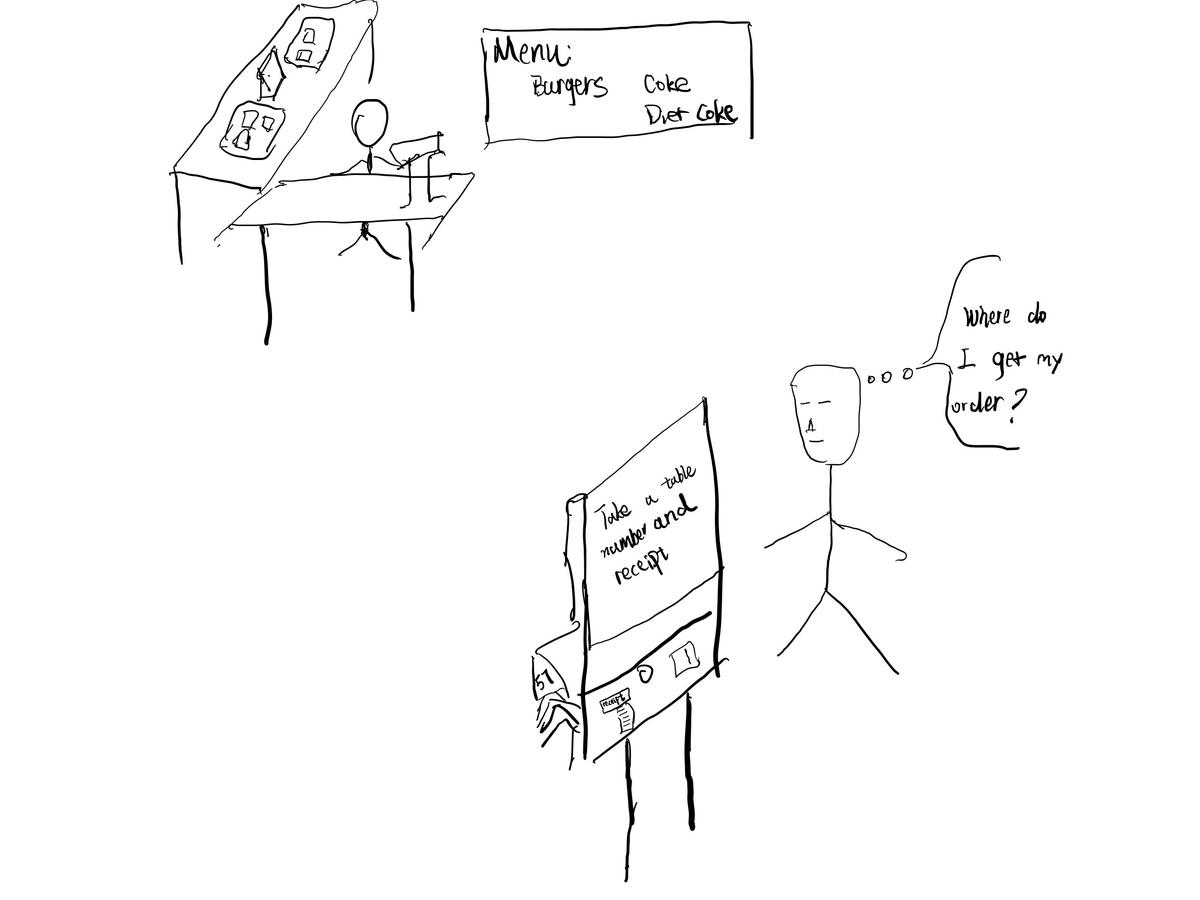 Menu:
Burgers Coke
Diet Coke
Where do
I get my
order?
Take a table
number and
receipt
57
receipt